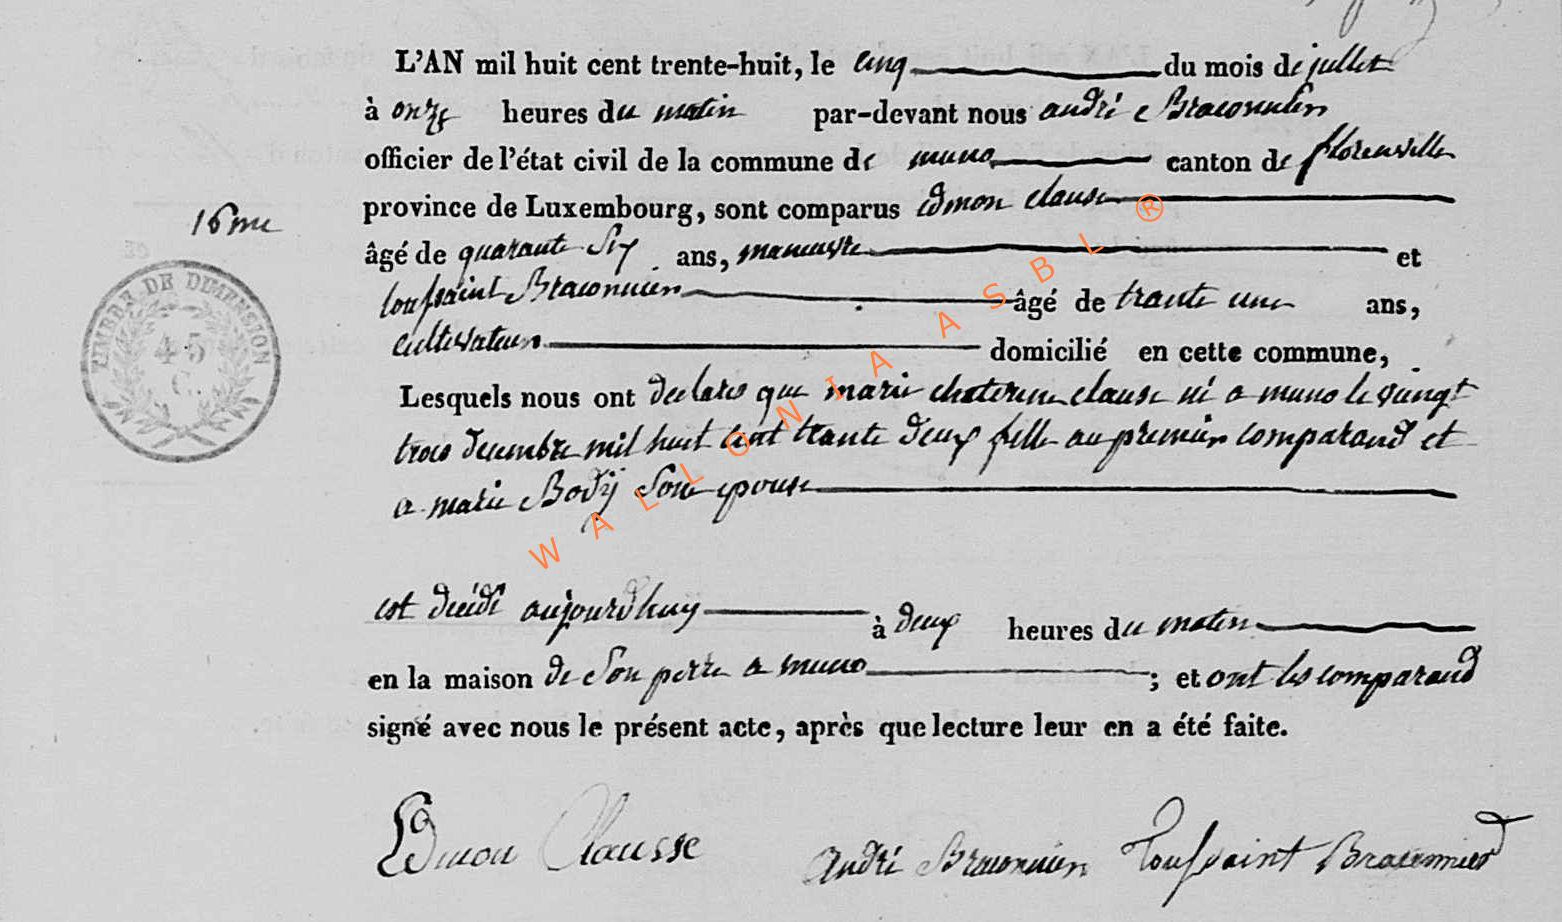 L'AN mil huit cent trente-huit, le cinq du mois de juillet
à onze heures du matin par-devant nous andré Braconnier
officier de l'état civil de la commune de muno canton de florenville
province de Luxembourg, sont comparus Edmon clause
16me
âgé de quarante Six ans, manuvre et
toussaint Braconnier âgé de trante une ans,
cultivateur domicilié en cette commune,
TIMBRE DE DIMENSION
45
C.
Lesquels nous ont declares que marie chaterine clause né a muno le vingt
trois decembre mil huit cent trante deux fille au premier comparand et
a marie Bodÿ Son epouse
WALLONIA ASBL ®
est décédé aujourd huy à deux heures du matin
en la maison de Son perre a muno ; et ont les comparand
signé avec nous le présent acte, après que lecture leur en a été faite.
Edmon Clausse
andré Braconnier Toussaint Braconnier